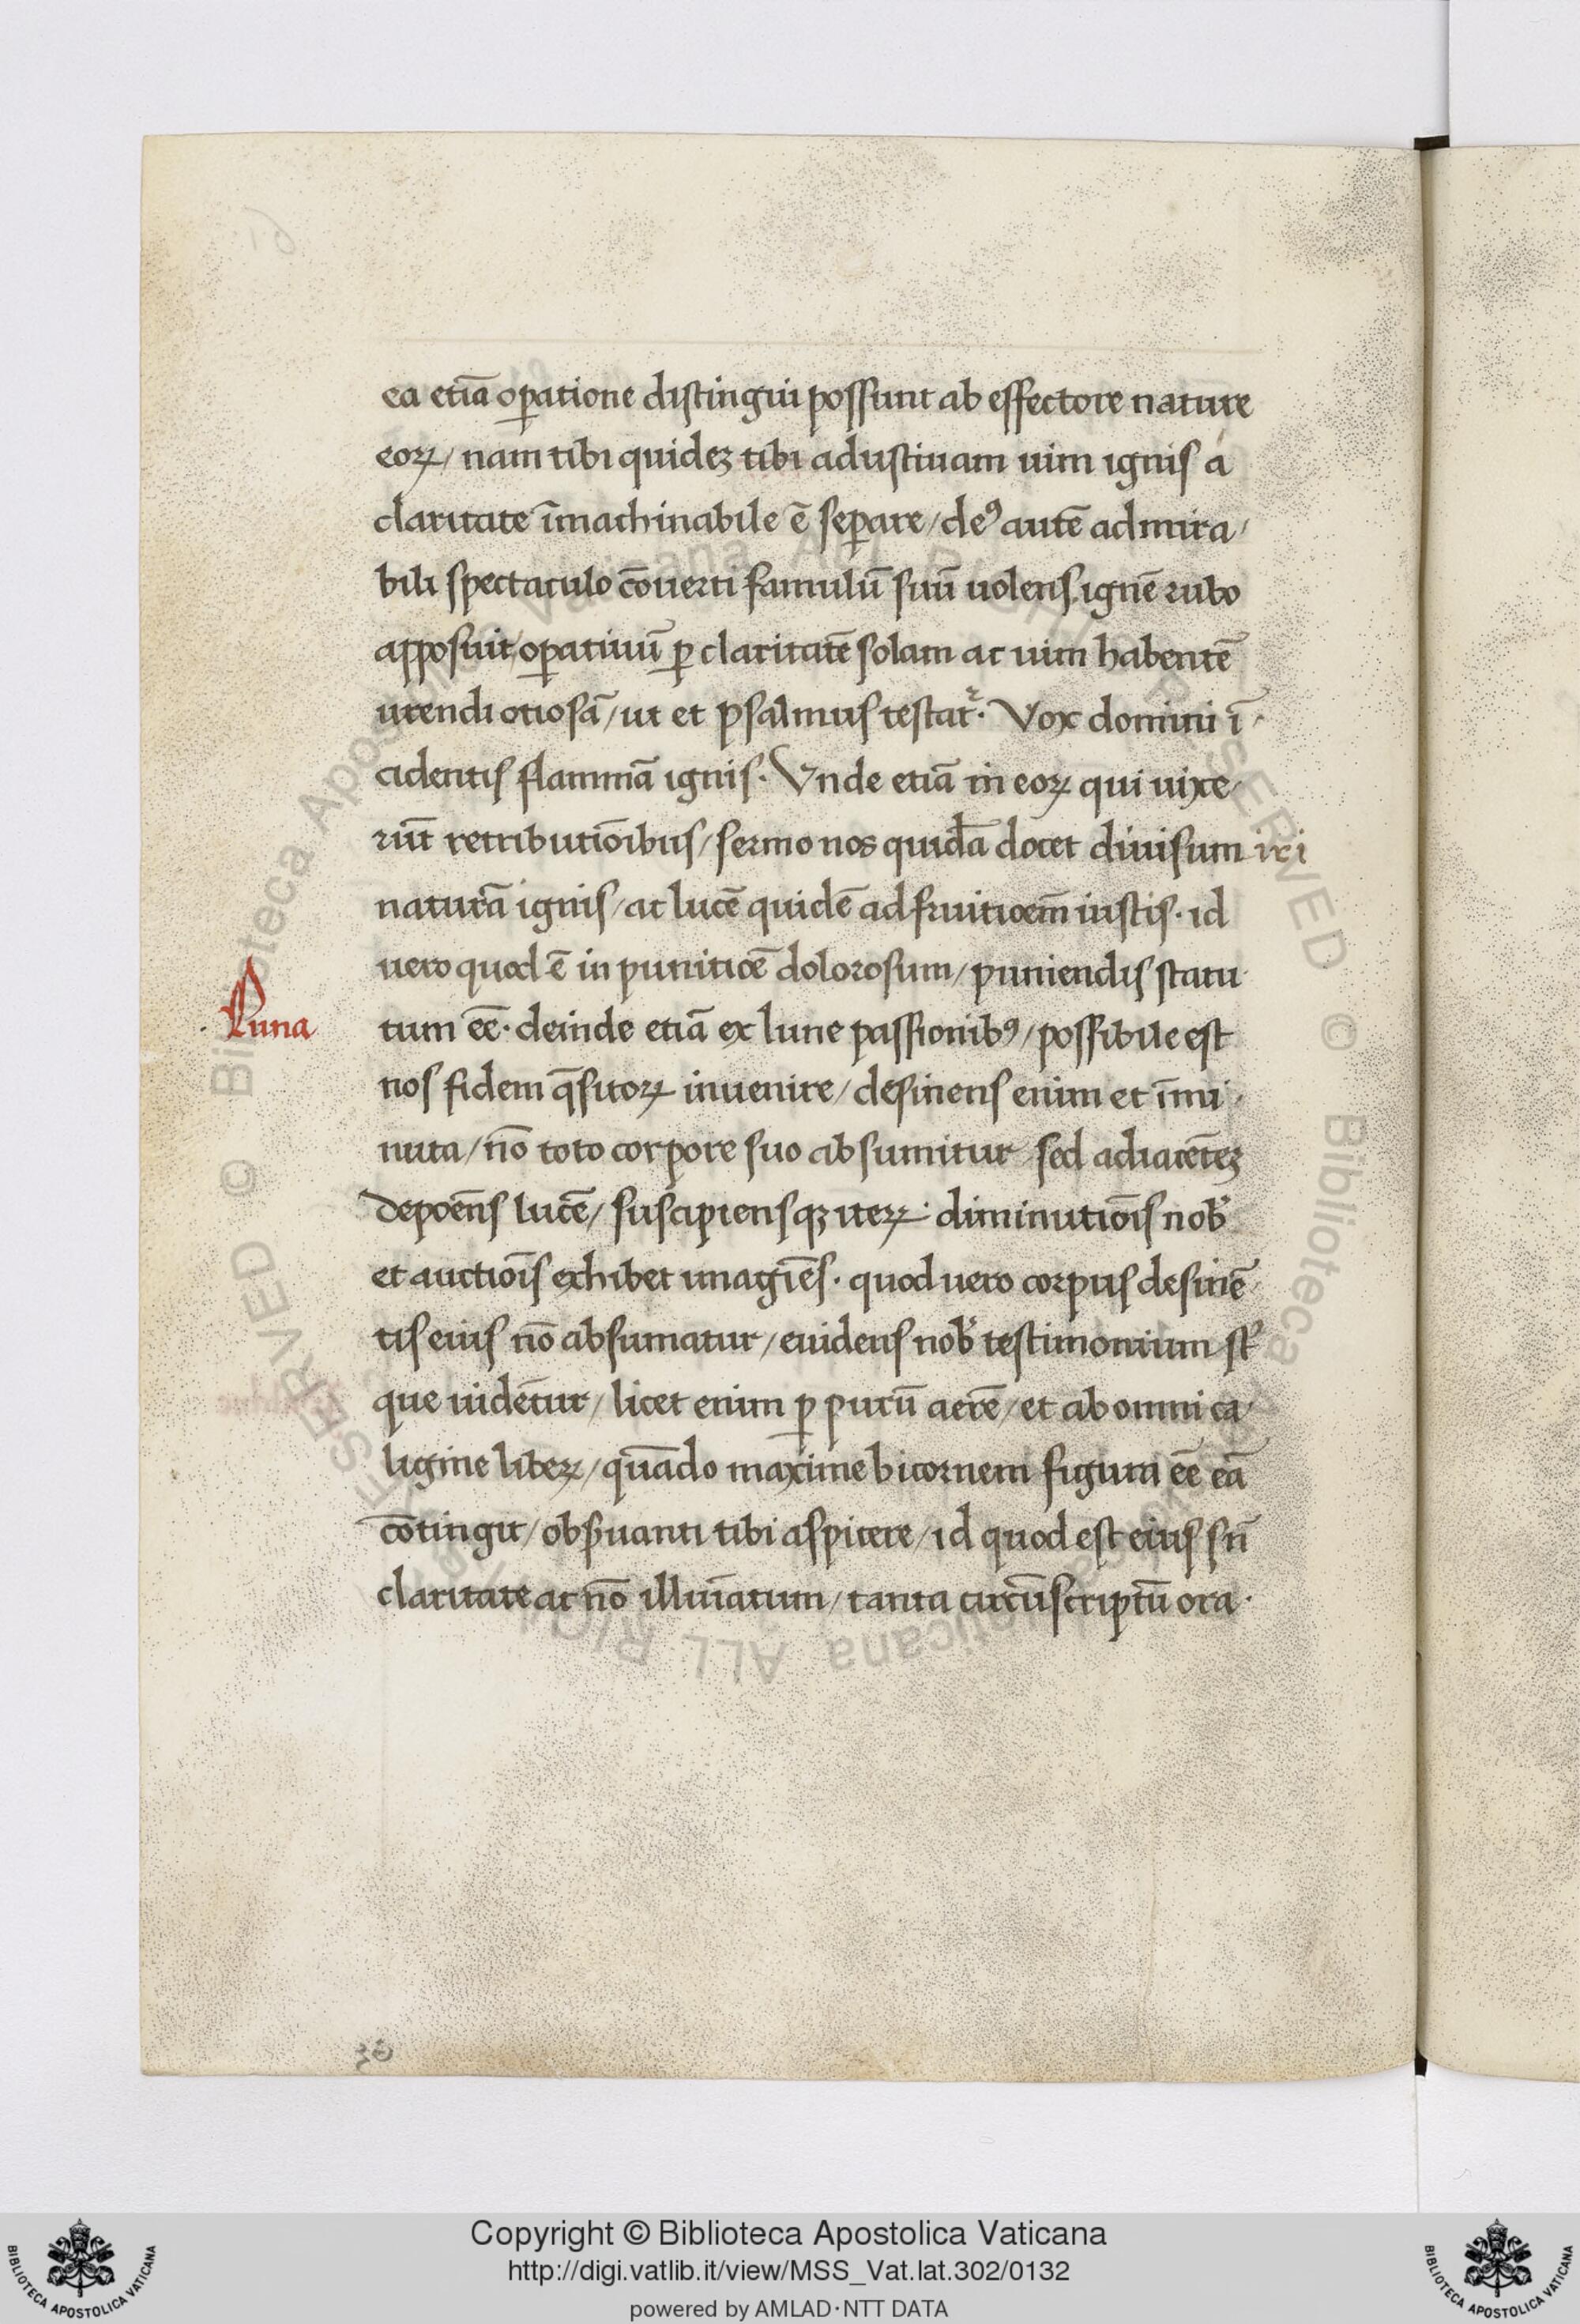 ea etiā oꝑatione distingui possunt ab effectore nature
eoꝝ/ nam tibi quideꝫ tibi adustiuam uim ignis á
claritate īmachinabile ē seꝑare/ deꝰ autē admira/
bili spectaculo cōuerti famulū suū uolens ignē rubo
apposuit/ oꝑatiuū ꝑ claritatē solam ac uim habentē
urendi otiosā/ ut et psalmus testat᷑. Vox domini ī/
cidentis flammā ignis. Vnde etiā in eoꝝ qui uixe/
rūt retributiōibus/ sermo nos quidā docet diuisum iri
naturā ignis/ ac lucē quidē ad fruitioēm iustis. id
uero quod ē in punitioē dolorosum/ puniendis statu
. Luna
tum eē. deinde etiā ex lune passionibꝰ/ possibile est
nos fidem q̄sitoꝝ inuenire/ desinens enim et īmi/
nuta/ nō toto corpore suo absumitur sed adiacēteꝫ
depoēns lucē/ suscipiensqꝫ iteꝝ. diminutiōis nob̄
et auctiōis exhibet imagīes. quod uero corpus desinē
tis eius nō absumatur/ euidens nob̄ testimonium st̄
que uidētur/ licet enim ꝑ purū aerē/ et ab omni ca/
ligine libeꝝ/ quādo maxime bicornem figura eē eā
cōtingit/ obẜuanti tibi aspicere/ id quod est eius sn̄
claritate ac nō illuīatum/ tanta circūscriptū ora.
Copyright © Biblioteca Apostolica Vaticana
http://digi.vatlib.it/view/MSS_Vat.lat.302/0132
powered by AMLAD·NTT DATA
BIBLIOTECA APOSTOLICA VATICANA
BIBLIOTECA APOSTOLICA VATICANA